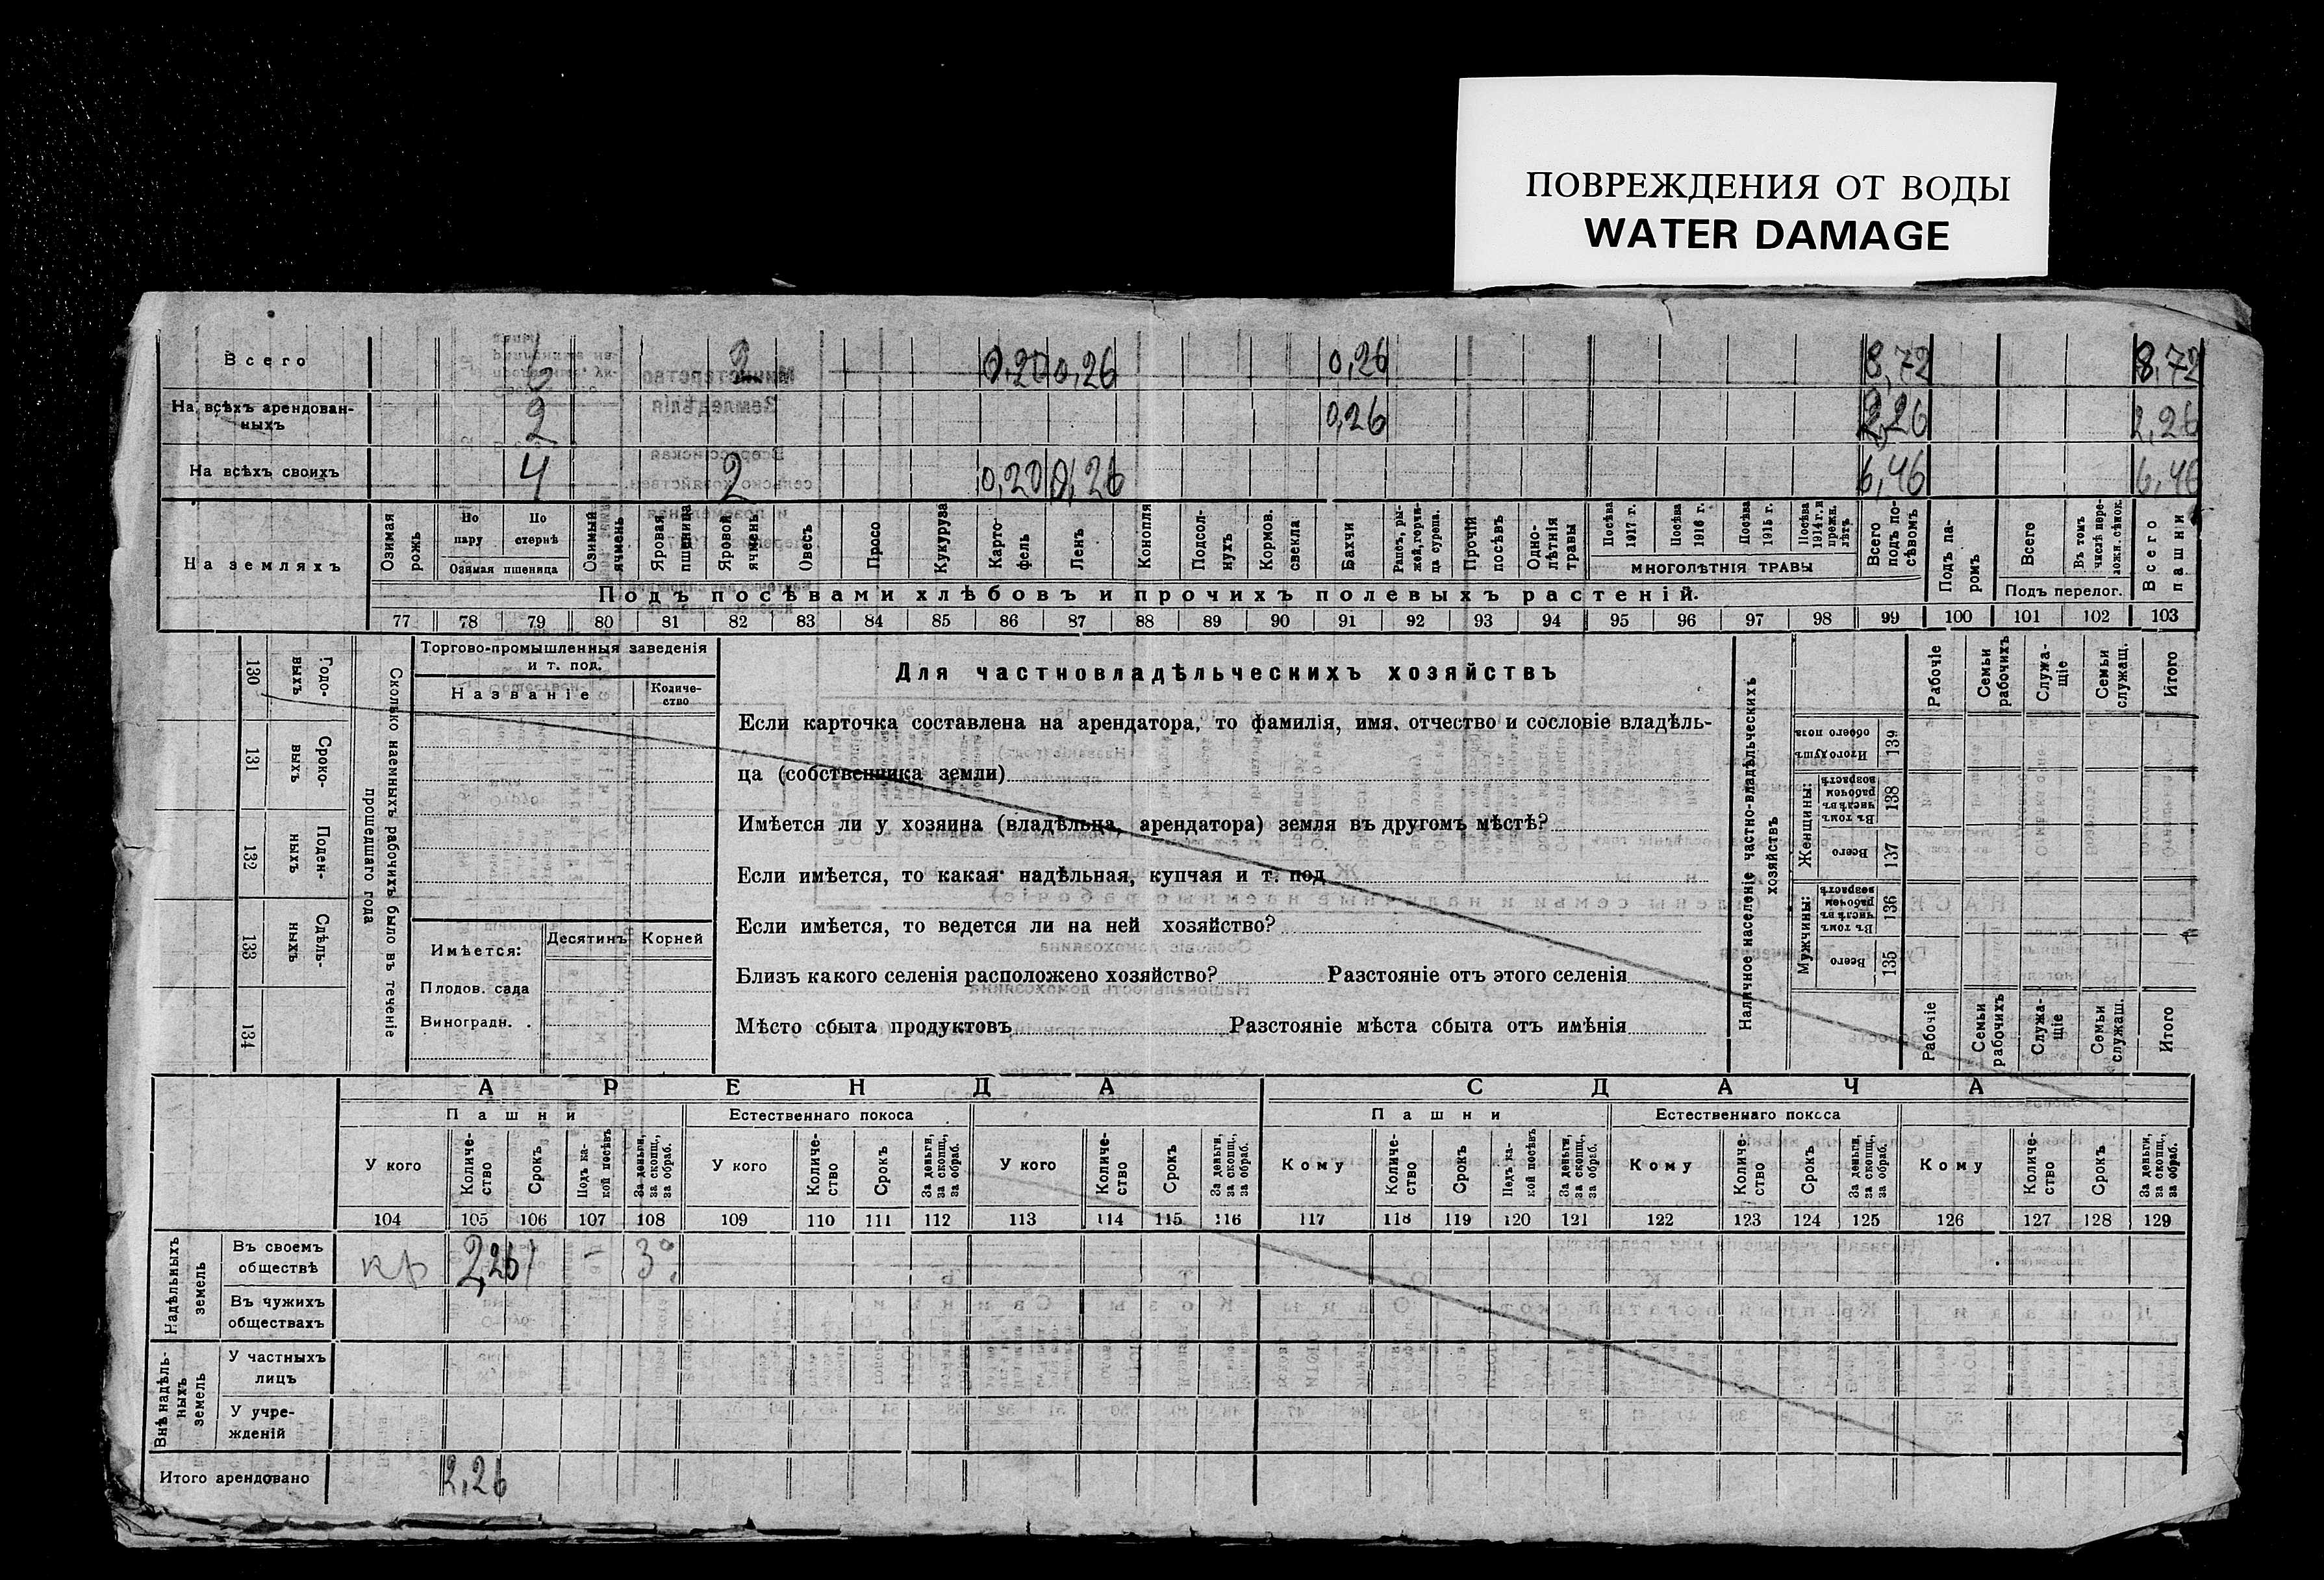 ПОВРЕЖДЕНИЯ ОТ ВОДЫ
WATER DAMAGE
Всего 6 2 0,20 0,26 0,26 8,72 8,72
На всѣхъ арендован-
ныхъ 2 0,26 2,26 2,26
На всѣхъ своихъ 4 2 0,20 0,26 6,46 6,46
На земляхъ
Озимая рожь
По пару
По стернѣ
Озимая пшеница
Озимый ячмень
Яровая пшеница
Яровой ячмень
Овесъ
Просо
Кукуруза
Карто-
фель
Ленъ
Конопля
Подсол-
нухъ
Кормов.
свекла
Бахчи
Рапсъ, ры-
жей, горчи-
ца сурепа.
Прочій
посѣвъ
Одно-
лѣтнія
травы
Посѣва
1917 г.
Посѣва
1916 г.
Посѣва
1915 г.
Посѣва
1914 г. и
прежн.
лѣтъ
МНОГОЛѢТНІЯ ТРАВЫ
Всего
подъ по-
сѣвомъ
Подъ па-
ромъ
Всего
Въ томъ
числѣ пере-
ложн. сѣнок.
Подъ перелог.
Всего
пашни
Подъ посѣвами хлѣбовъ и прочихъ полевыхъ растеній.
77 78 79 80 81 82 83 84 85 86 87 88 89 90 91 92 93 94 95 96 97 98 99 100 101 102 103
Сколько наемныхъ рабочихъ было въ теченіе
прошедшаго года
Годо-
выхъ
130
Сроко-
выхъ
131
Поден-
ныхъ
132
Сдѣль-
ныхъ
133
134
Торгово-промышленныя заведенія
и т. под.
Названіе
Количе-
ство
Имѣется:
Десятинъ Корней
Плодов. сада
Виноградн. .
Для частновладѣльческихъ хозяйствъ
Если карточка составлена на арендатора, то фамилія, имя, отчество и сословіе владѣль-
ца (собственника земли)
Имѣется ли у хозяина (владѣльца, арендатора) земля въ другомъ мѣстѣ?
Если имѣется, то какая: надѣльная, купчая и т. под
Если имѣется, то ведется ли на ней хозяйство?
Близъ какого селенія расположено хозяйство? Разстояніе отъ этого селенія
Мѣсто сбыта продуктовъ Разстояніе мѣста сбыта отъ имѣнія
Наличное населеніе частно-владѣльческихъ
хозяйствъ
Рабочіе
Семьи
рабочихъ
Служа-
щіе
Семьи
служащ.
Итого
Итого душъ
обоего пола
139
Женщины:
Въ томъ
числѣ въ
рабочемъ
возрастѣ
138
Всего
137
Мужчины:
Въ томъ
числѣ въ
рабочемъ
возрастѣ
136
Всего
135
Рабочіе
Семьи
рабочихъ
Служа-
щіе
Семьи
служащ.
Итого
АРЕНДА СДАЧА
Пашни Естественнаго покоса Пашни Естественнаго покоса
У кого
Количе-
ство
Срокъ
Подъ ка-
кой посѣвъ
За деньги,
за скопщ.,
за обраб.
У кого
Количе-
ство
Срокъ
За деньги,
за скопщ.,
за обраб.
У кого
Количе-
ство
Срокъ
За деньги,
за скопщ.,
за обраб.
Кому
Количе-
ство
Срокъ
Подъ ка-
кой посѣвъ
За деньги,
за скопщ.,
за обраб.
Кому
Количе-
ство
Срокъ
За деньги,
за скопщ.,
за обраб.
Кому
Количе-
ство
Срокъ
За деньги,
за скопщ.,
за обраб.
104 105 106 107 108 109 110 111 112 113 114 115 116 117 118 119 120 121 122 123 124 125 126 127 128 129
Надѣльныхъ
земель
Въ своемъ
обществѣ кр 2,26
Въ чужихъ
обществахъ
Внѣ надѣль-
ныхъ
земель
У частныхъ
лицъ
У учре-
жденій
Итого арендовано 2,26